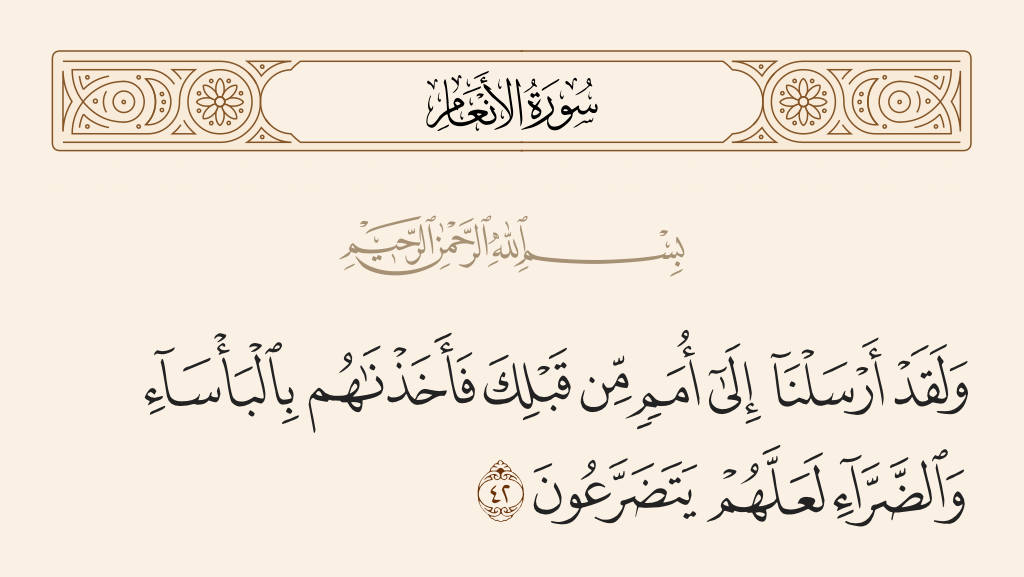 سُورَةُ الأَنْعَامِ
بِسْمِ ٱللَّهِ ٱلرَّحْمَٰنِ ٱلرَّحِيمِ
وَلَقَدْ أَرْسَلْنَآ إِلَىٰٓ أُمَمٍ مِّن قَبْلِكَ فَأَخَذْنَٰهُم بِٱلْبَأْسَآءِ
وَٱلضَّرَّآءِ لَعَلَّهُمْ يَتَضَرَّعُونَ ٤٢